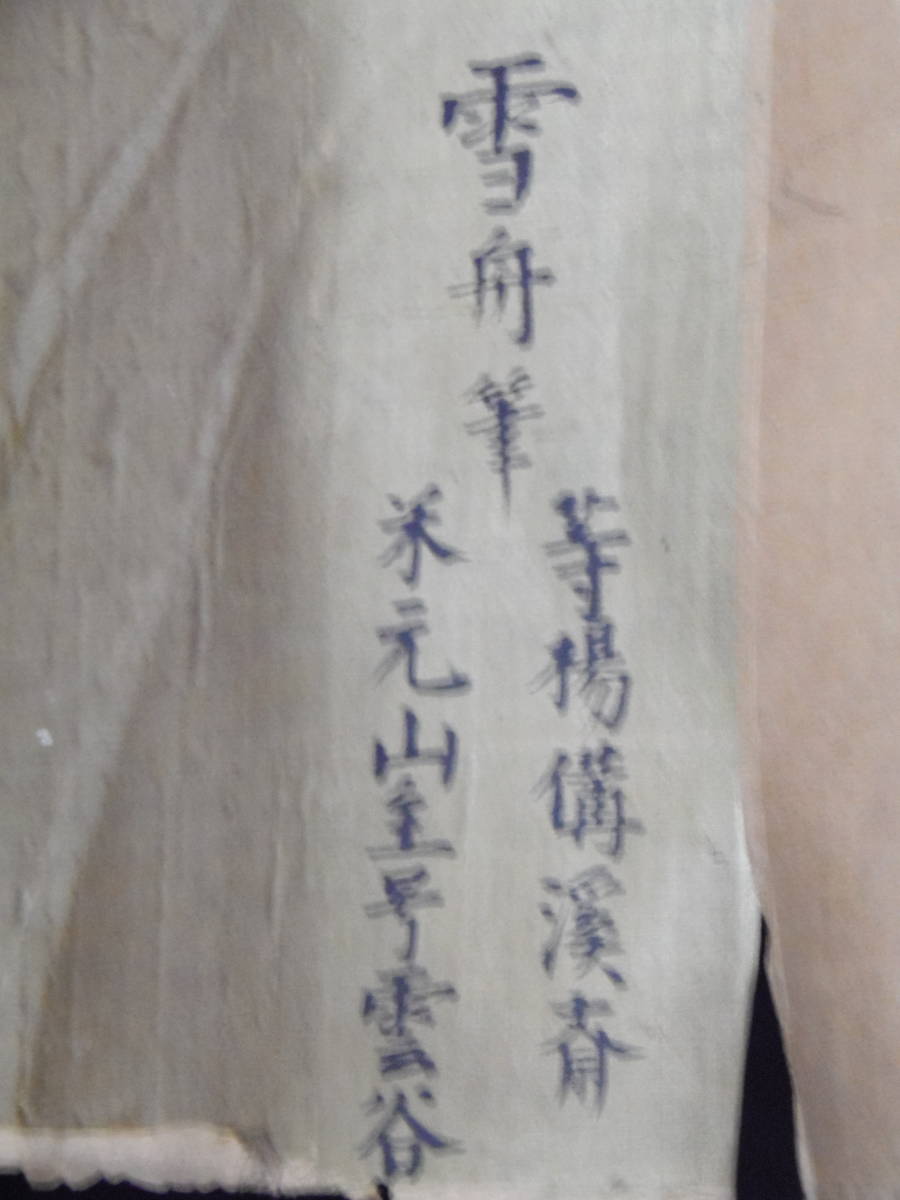 雪舟筆
等楊備溪斎
米元山主号雲谷